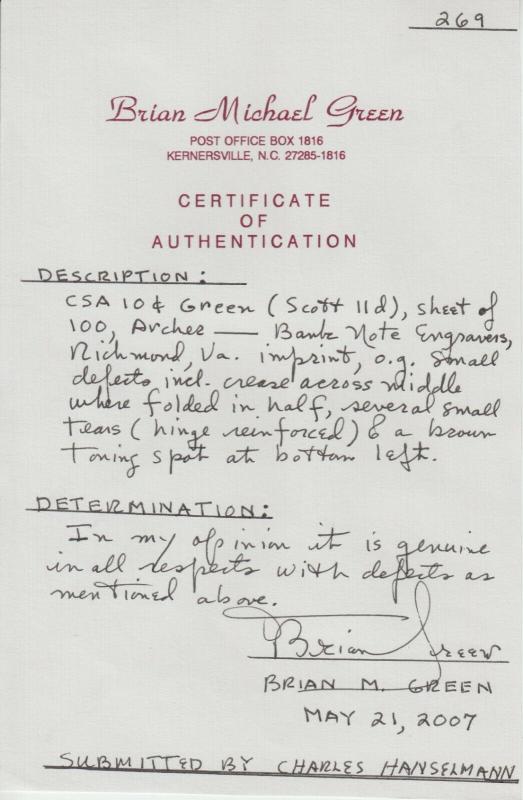 269
Brian Michael Green
POST OFFICE BOX 1816
KERNERSVILLE, N.C. 27285-1816
CERTIFICATE
OF
AUTHENTICATION
DESCRIPTION:
CSA 10¢ Green (Scott 11d), sheet of
100, Archer — Bank Note Engravers,
Richmond, Va. imprint, o.g. Small
defects incl. crease across middle
where folded in half, several small
tears (hinge reinforced) & a brown
toning spot at bottom left.
DETERMINATION:
In my opinion it is genuine
in all respects with defects as
mentioned above.
Brian Green
BRIAN M. GREEN
MAY 21, 2007
SUBMITTED BY CHARLES HANSELMANN